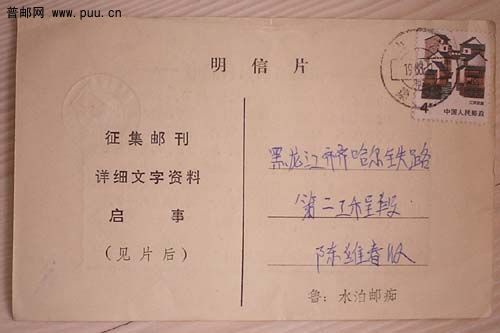 普邮网 www.puu.cn
明 信 片
征 集 邮 刊
详细文字资料
启 事
(见片后)
黑龙江齐齐哈尔铁路
第二工程段
陈维春收
鲁: 水泊邮痴
19
4
中国人民邮政